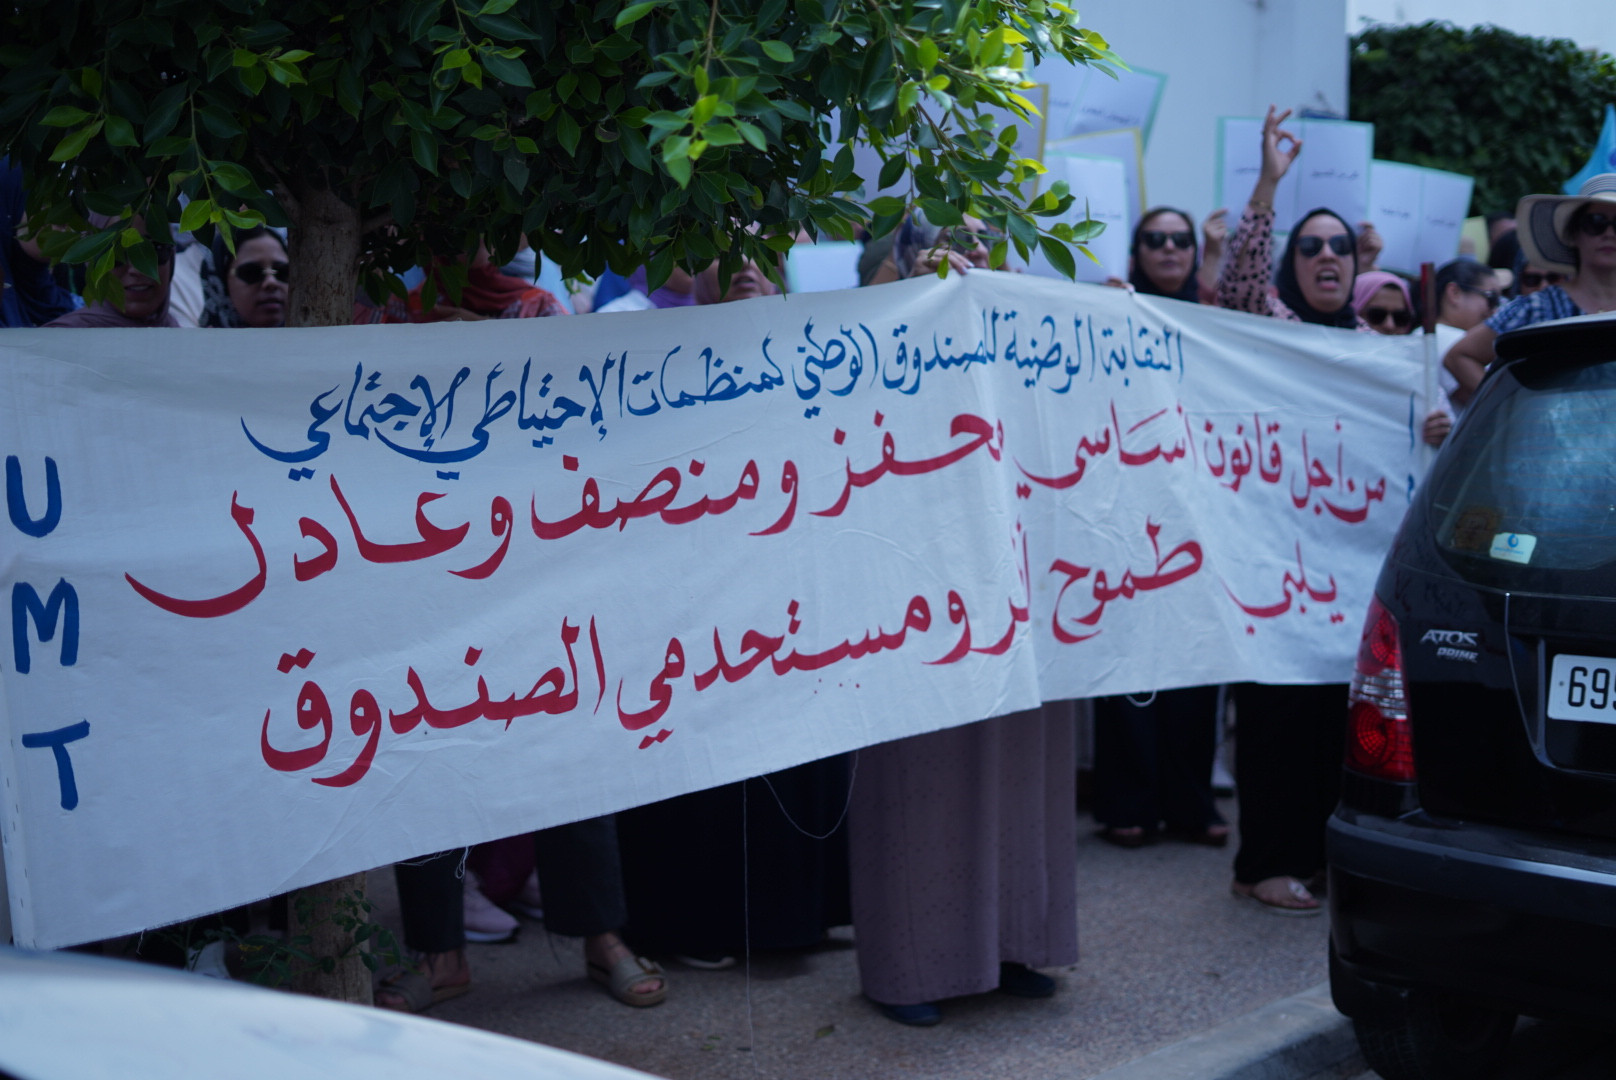 النقابة الوطنية للصندوق الوطني لمنظمات الإحتياط الإجتماعي
من أجل قانون أساسي محفز ومنصف وعادل
يلبي طموح أطر ومستخدمي الصندوق
UMT
ATOS
PRIME
695